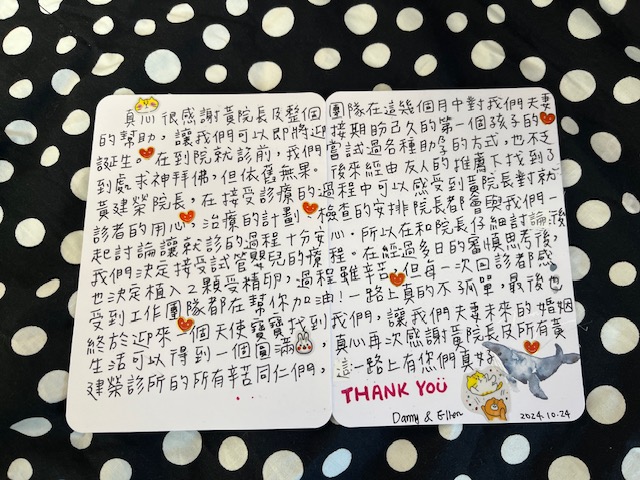 真心很感謝黃院長及整個團隊在這幾個月中對我們夫妻
的幫助，讓我們可以即將迎接期盼已久的第一個孩子的
誕生。在到院就診前，我們嘗試過各種助孕的方式，也不乏
到處求神拜佛，但依舊無果。後來經由友人的推薦下找到了
黃建榮院長，在接受診療的過程中可以感受到黃院長對就
診者的用心，治療的計劃、檢查的安排院長都會與我們一
起討論讓就診的過程十分安心。所以在和院長仔細討論後，
我們決定接受試管嬰兒的療程。在經過多日的審慎思考後，
也決定植入2顆受精卵，過程雖辛苦，但每一次回診都感
受到工作團隊都在幫你加油！一路上真的不孤單，最後也
終於迎來一個天使寶寶找到我們，讓我們夫妻未來的婚姻
生活可以得到一個圓滿，真心再次感謝黃院長及所有黃
建榮診所的所有辛苦同仁們，這一路上有您們真好
THANK YOU
Danny & Ellen
2024.10.24